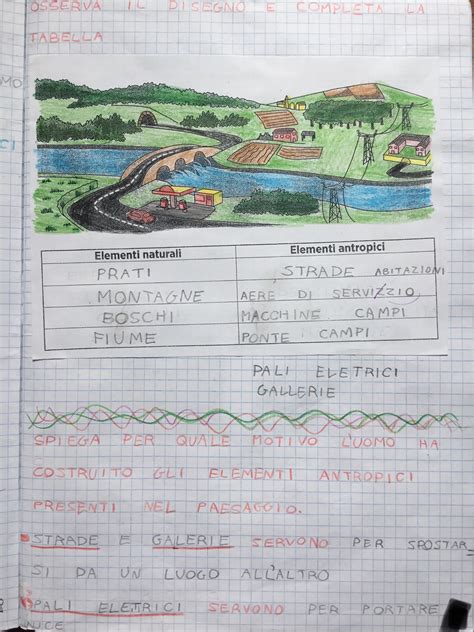 OSSERVA IL DISEGNO E COMPLETA LA
TABELLA
MO
CI
Elementi naturali Elementi antropici
PRATI STRADE ABITAZIONI
MONTAGNE AERE DI SERVIZZIO
BOSCHI MACCHINE CAMPI
FIUME PONTE CAMPI
PALI ELETRICI
GALLERIE
SPIEGA PER QUALE MOTIVO L'UOMO HA
COSTRUITO GLI ELEMENTI ANTROPICI
PRESENTI NEL PAESAGGIO.
STRADE E GALERIE SERVONO PER SPOSTAR
SI DA UN LUOGO ALL'ALTRO
PALI ELETRICI SERVONO PER PORTARE
LUCE